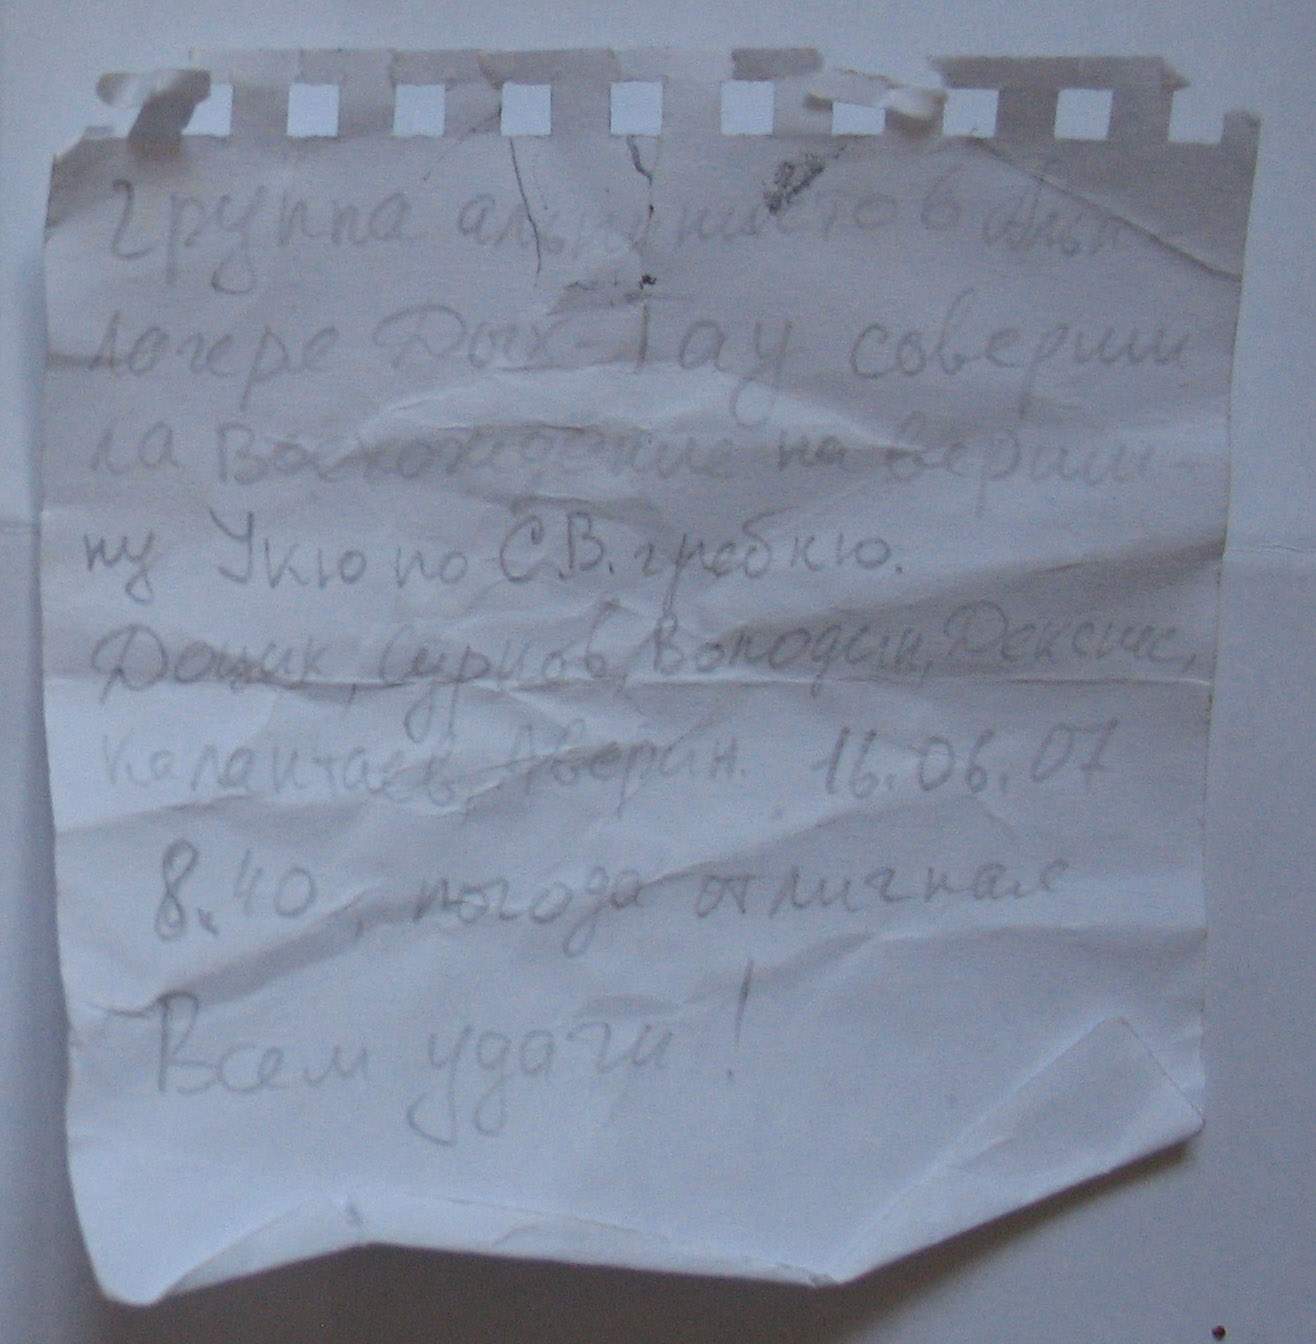 Группа альпинистов Альп
лагере Дых-Тау соверши
ла Восхождение на верши-
ну Укю по С.В. гребкю.
Доцик, Сурков, Володин,
Калантаев, Аверин. 16.06.07
8.40, погода отличная
Всем удачи!